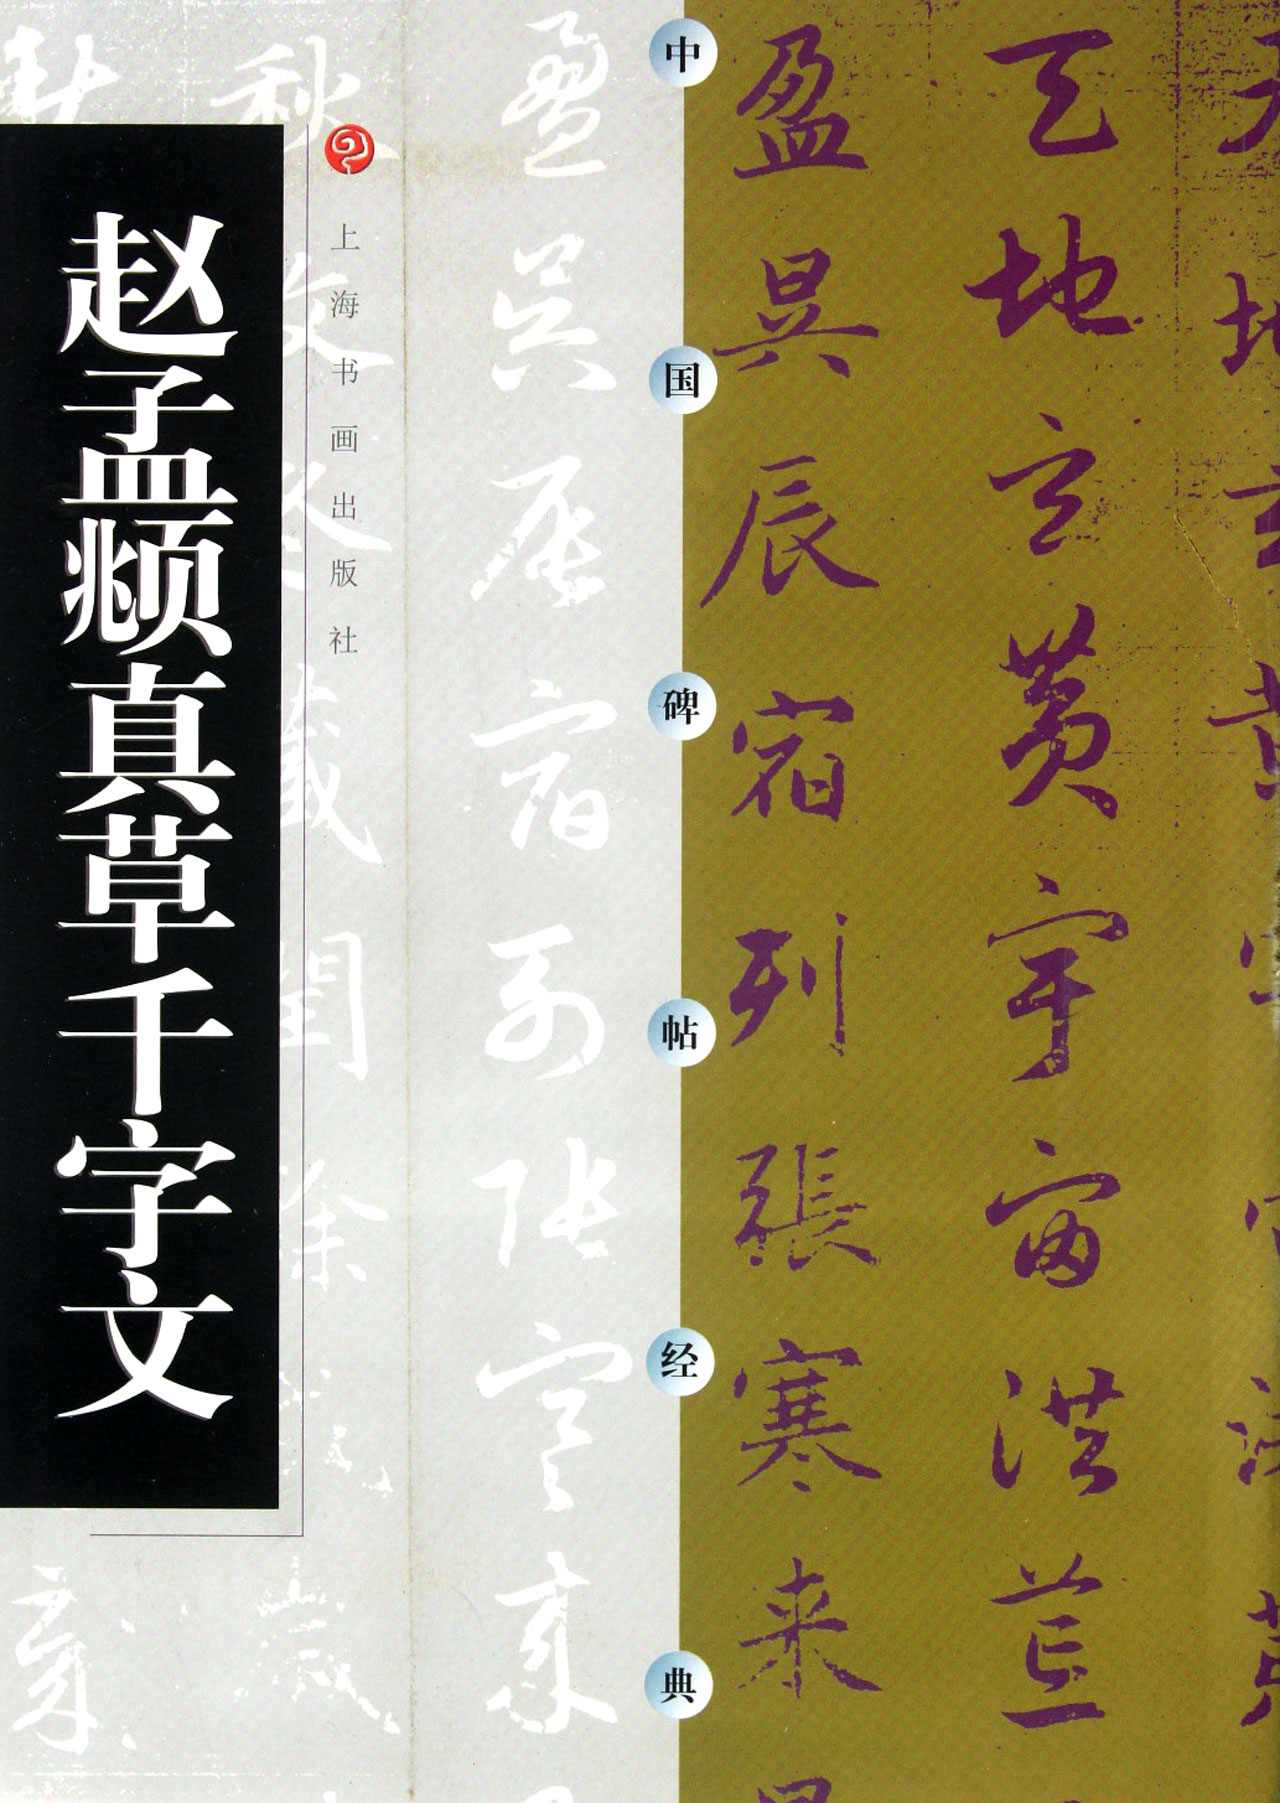 赵孟頫真草千字文
上海书画出版社
中国碑帖经典
天地玄黄宇宙洪荒
天地玄黃宇宙洪荒
盈昃辰宿列張寒来
盈昃辰宿列张寒来
秋